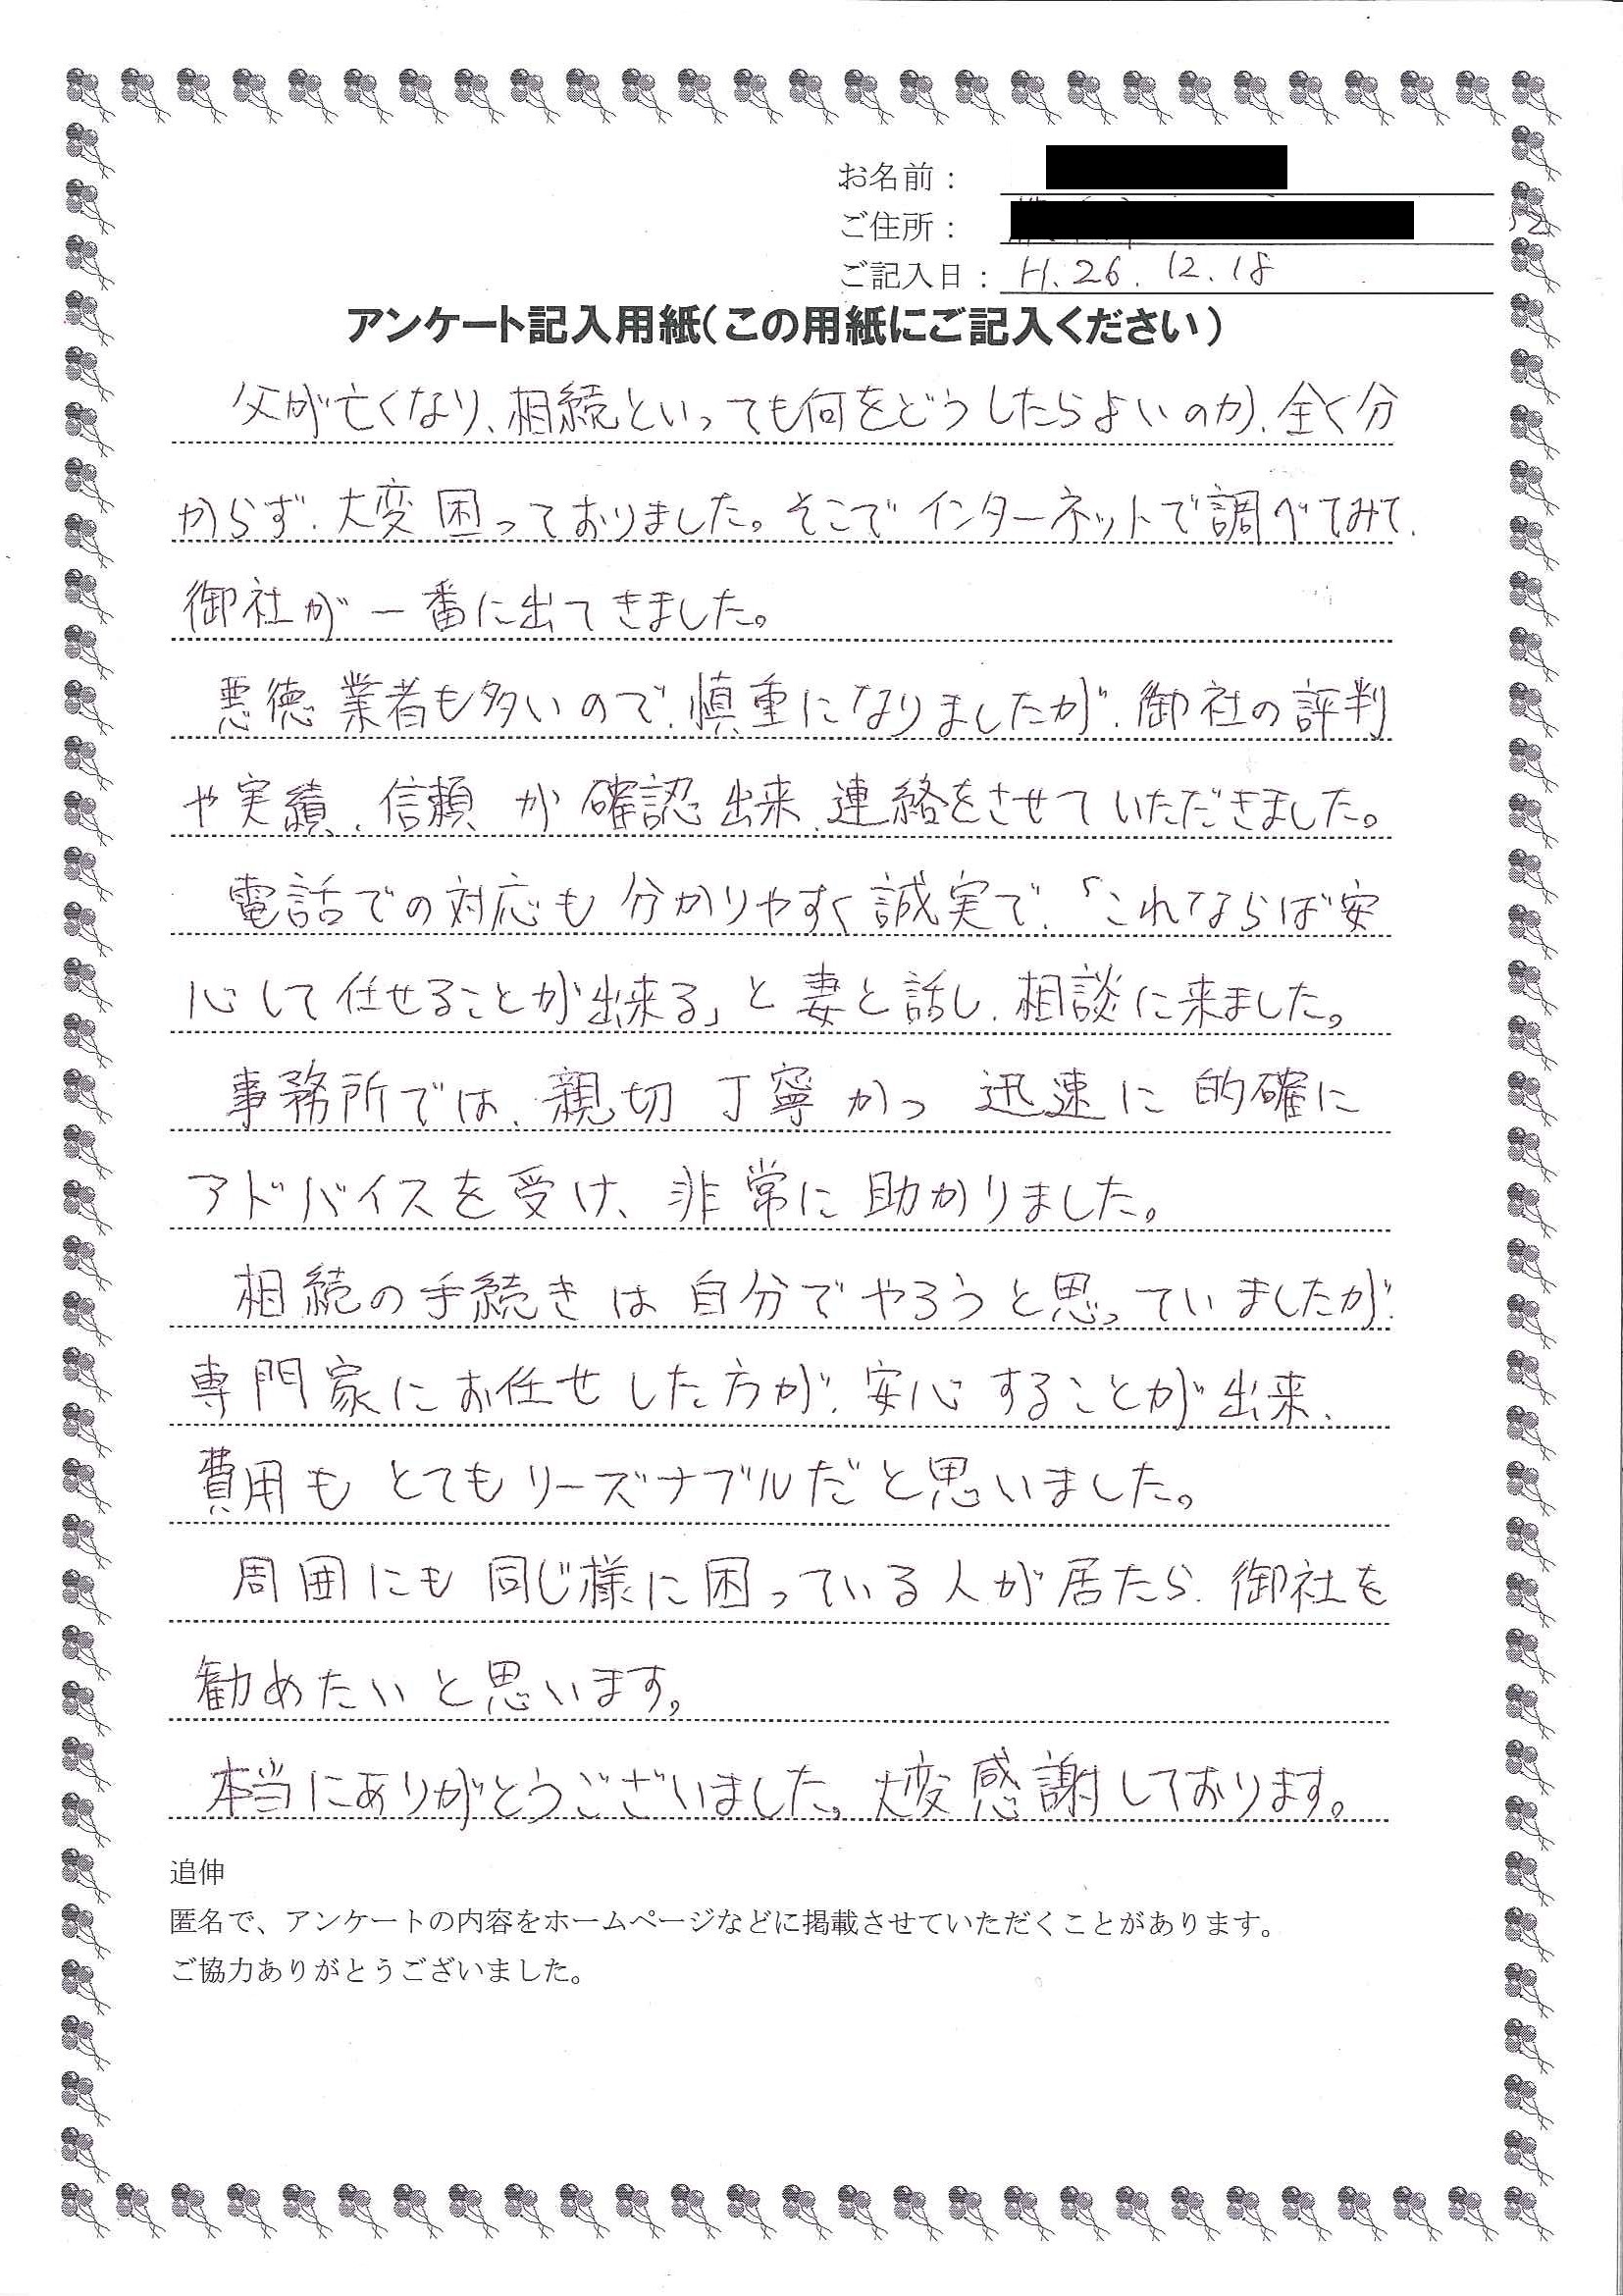 お名前：
ご住所：
ご記入日：H.26.12.18
アンケート記入用紙（この用紙にご記入ください）
父が亡くなり、相続といっても何をどうしたらよいのか、全く分
からず、大変困っておりました。そこでインターネットで調べてみて、
御社が一番に出てきました。
悪徳業者も多いので、慎重になりましたが、御社の評判
や実績、信頼が確認出来、連絡をさせていただきました。
電話での対応も分かりやすく誠実で、「これならば安
心して任せることが出来る」と妻と話し、相談に来ました。
事務所では、親切丁寧かつ迅速に的確に
アドバイスを受け、非常に助かりました。
相続の手続きは自分でやろうと思っていましたが、
専門家にお任せした方が、安心することが出来、
費用もとてもリーズナブルだと思いました。
周囲にも同じ様に困っている人が居たら、御社を
勧めたいと思います。
本当にありがとうございました。大変感謝しております。
追伸
匿名で、アンケートの内容をホームページなどに掲載させていただくことがあります。
ご協力ありがとうございました。